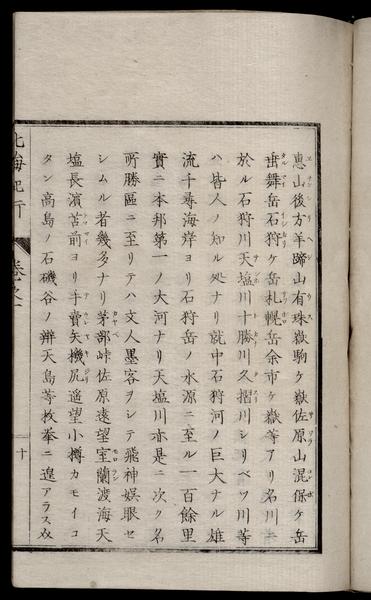 惠山後方羊蹄山有珠嶽駒ケ嶽佐原山混保ケ岳
垂舞岳石狩ケ岳札幌岳余市ケ嶽等アリ名川ニ
於ル石狩川天塩川十勝川久摺川シリベツ川等
ハ皆人ノ知ル処ナリ就中石狩河ノ巨大ナル雄
流千尋海岸ヨリ石狩岳ノ水源ニ至ル一百餘里
實ニ本邦第一ノ大河ナリ天塩川亦是ニ次ク名
所勝區ニ至リテハ文人墨客ヲシテ飛神娯眼セ
シムル者幾多ナリ茅部峠佐原遠望室蘭渡海天
塩長濱苫前ヨリ手賣矢機尻遥望小樽カモイコ
タン高島ノ石磯谷ノ辨天島等枚挙ニ遑アラス
北海紀行
巻之一
十